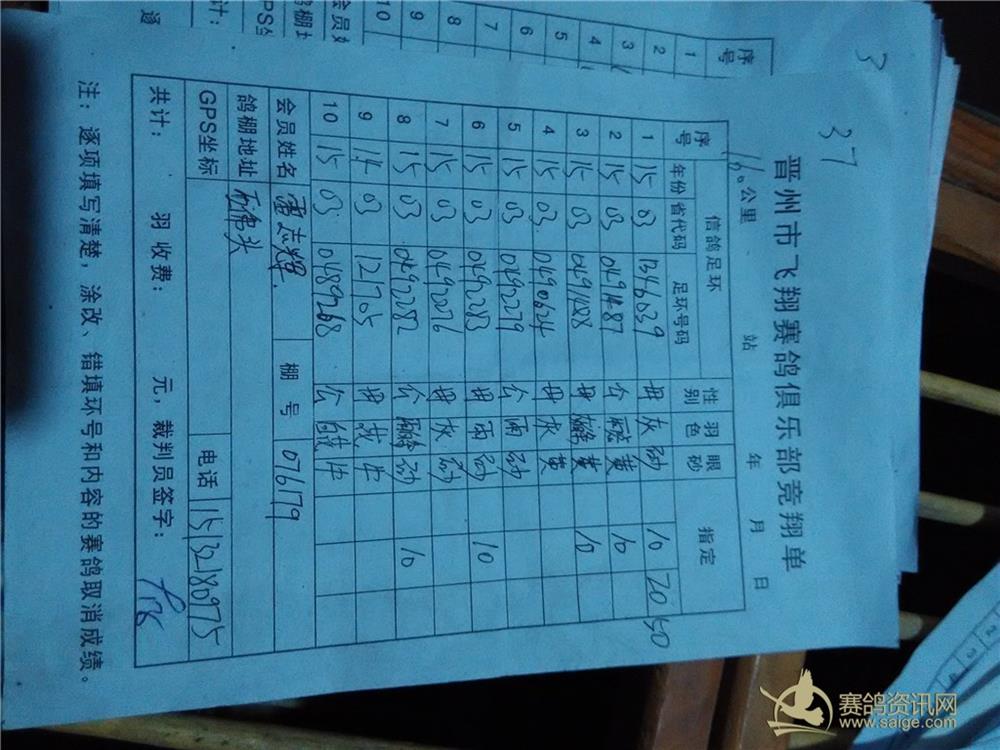 37
晋州市飞翔赛鸽俱乐部竞翔单
160公里 站 年 月 日
序号 信鸽足环 性别 羽色 眼砂 指定
年份 省代码 足环号码
1 15 03 1346039 母 灰 砂 10 20 50
2 15 03 0491487 公 黄 10
3 15 03 0491488 母 黄 10
4 15 03 0490624 母 灰 黄
5 15 03 0492279 公 雨 砂
6 15 03 0492283 母 雨 砂 10
7 15 03 0492276 母 灰 砂
8 15 03 0492282 公 砂 10
9 14 03 121705 母
10 15 03 0489268 公
会员姓名 雷志辉 棚号 076179
鸽棚地址
GPS坐标 电话 15132180975
共计: 羽收费: 元, 裁判员签字:
注: 逐项填写清楚, 涂改、错填环号和内容的赛鸽取消成绩。
序号
1
2
3
4
5
6
7
8
9
10
会员姓
鸽棚地
GPS坐
计:
逐
3
赛鸽资讯网
www.saige.com